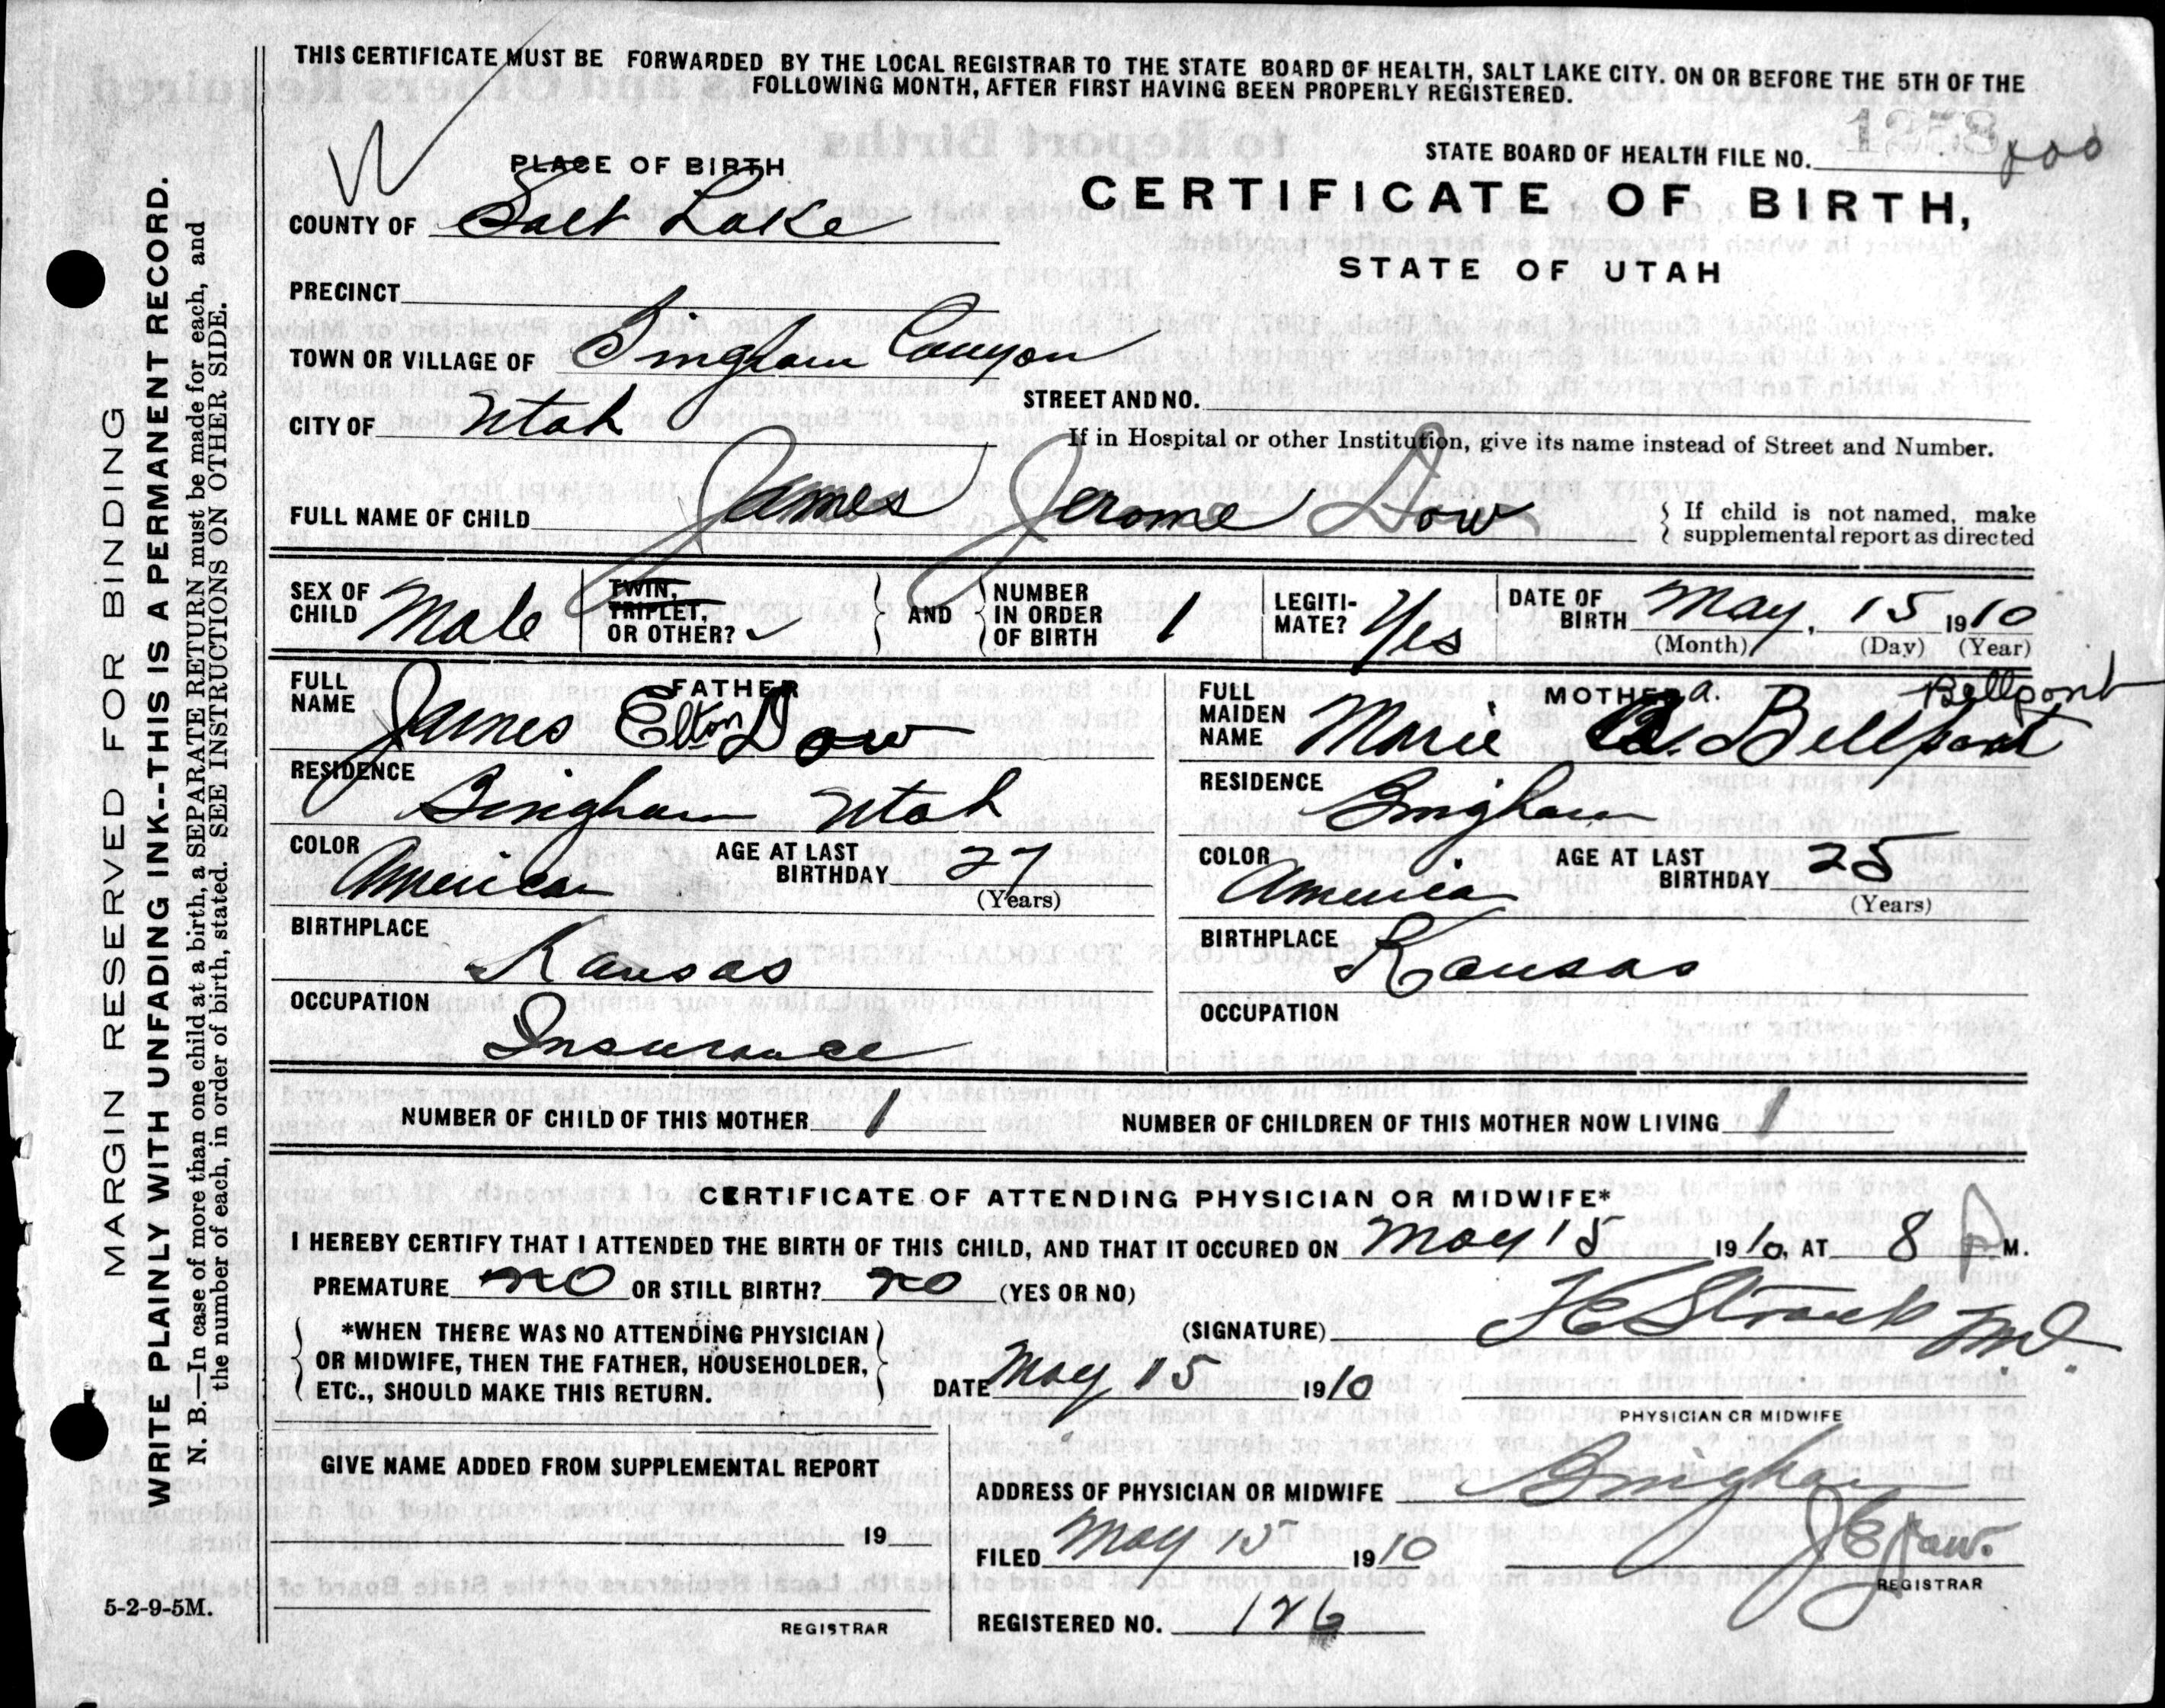 THIS CERTIFICATE MUST BE FORWARDED BY THE LOCAL REGISTRAR TO THE STATE BOARD OF HEALTH, SALT LAKE CITY. ON OR BEFORE THE 5TH OF THE
FOLLOWING MONTH, AFTER FIRST HAVING BEEN PROPERLY REGISTERED.
STATE BOARD OF HEALTH FILE NO. 1258
PLACE OF BIRTH
CERTIFICATE OF BIRTH,
STATE OF UTAH
COUNTY OF Salt Lake
PRECINCT
TOWN OR VILLAGE OF Bingham Canyon
CITY OF Utah
STREET AND NO.
If in Hospital or other Institution, give its name instead of Street and Number.
FULL NAME OF CHILD James Jerome Dow
If child is not named, make
supplemental report as directed
SEX OF CHILD Male
TWIN, TRIPLET, OR OTHER?
AND
NUMBER IN ORDER OF BIRTH 1
LEGITI-MATE? Yes
DATE OF BIRTH May, 15 1910
(Month) (Day) (Year)
FATHER
FULL NAME James Elton Dow
RESIDENCE
Bingham Utah
COLOR American
AGE AT LAST BIRTHDAY 27
(Years)
BIRTHPLACE
Kansas
OCCUPATION
Insurance
MOTHER a. Bellpont
FULL MAIDEN NAME Marie Bellpont
RESIDENCE
Bingham
COLOR America
AGE AT LAST BIRTHDAY 25
(Years)
BIRTHPLACE
Kansas
OCCUPATION
NUMBER OF CHILD OF THIS MOTHER 1
NUMBER OF CHILDREN OF THIS MOTHER NOW LIVING 1
CERTIFICATE OF ATTENDING PHYSICIAN OR MIDWIFE*
I HEREBY CERTIFY THAT I ATTENDED THE BIRTH OF THIS CHILD, AND THAT IT OCCURED ON May 15 1910, AT 8 P M.
PREMATURE no OR STILL BIRTH? no (YES OR NO)
*WHEN THERE WAS NO ATTENDING PHYSICIAN
OR MIDWIFE, THEN THE FATHER, HOUSEHOLDER,
ETC., SHOULD MAKE THIS RETURN.
(SIGNATURE) MD.
DATE May 15 1910
PHYSICIAN OR MIDWIFE
GIVE NAME ADDED FROM SUPPLEMENTAL REPORT
19
REGISTRAR
ADDRESS OF PHYSICIAN OR MIDWIFE Bingham
FILED May 15 1910
REGISTRAR
REGISTERED NO. 126
MARGIN RESERVED FOR BINDING
WRITE PLAINLY WITH UNFADING INK--THIS IS A PERMANENT RECORD.
N. B.—In case of more than one child at a birth, a SEPARATE RETURN must be made for each, and
the number of each, in order of birth, stated. SEE INSTRUCTIONS ON OTHER SIDE.
5-2-9-5M.